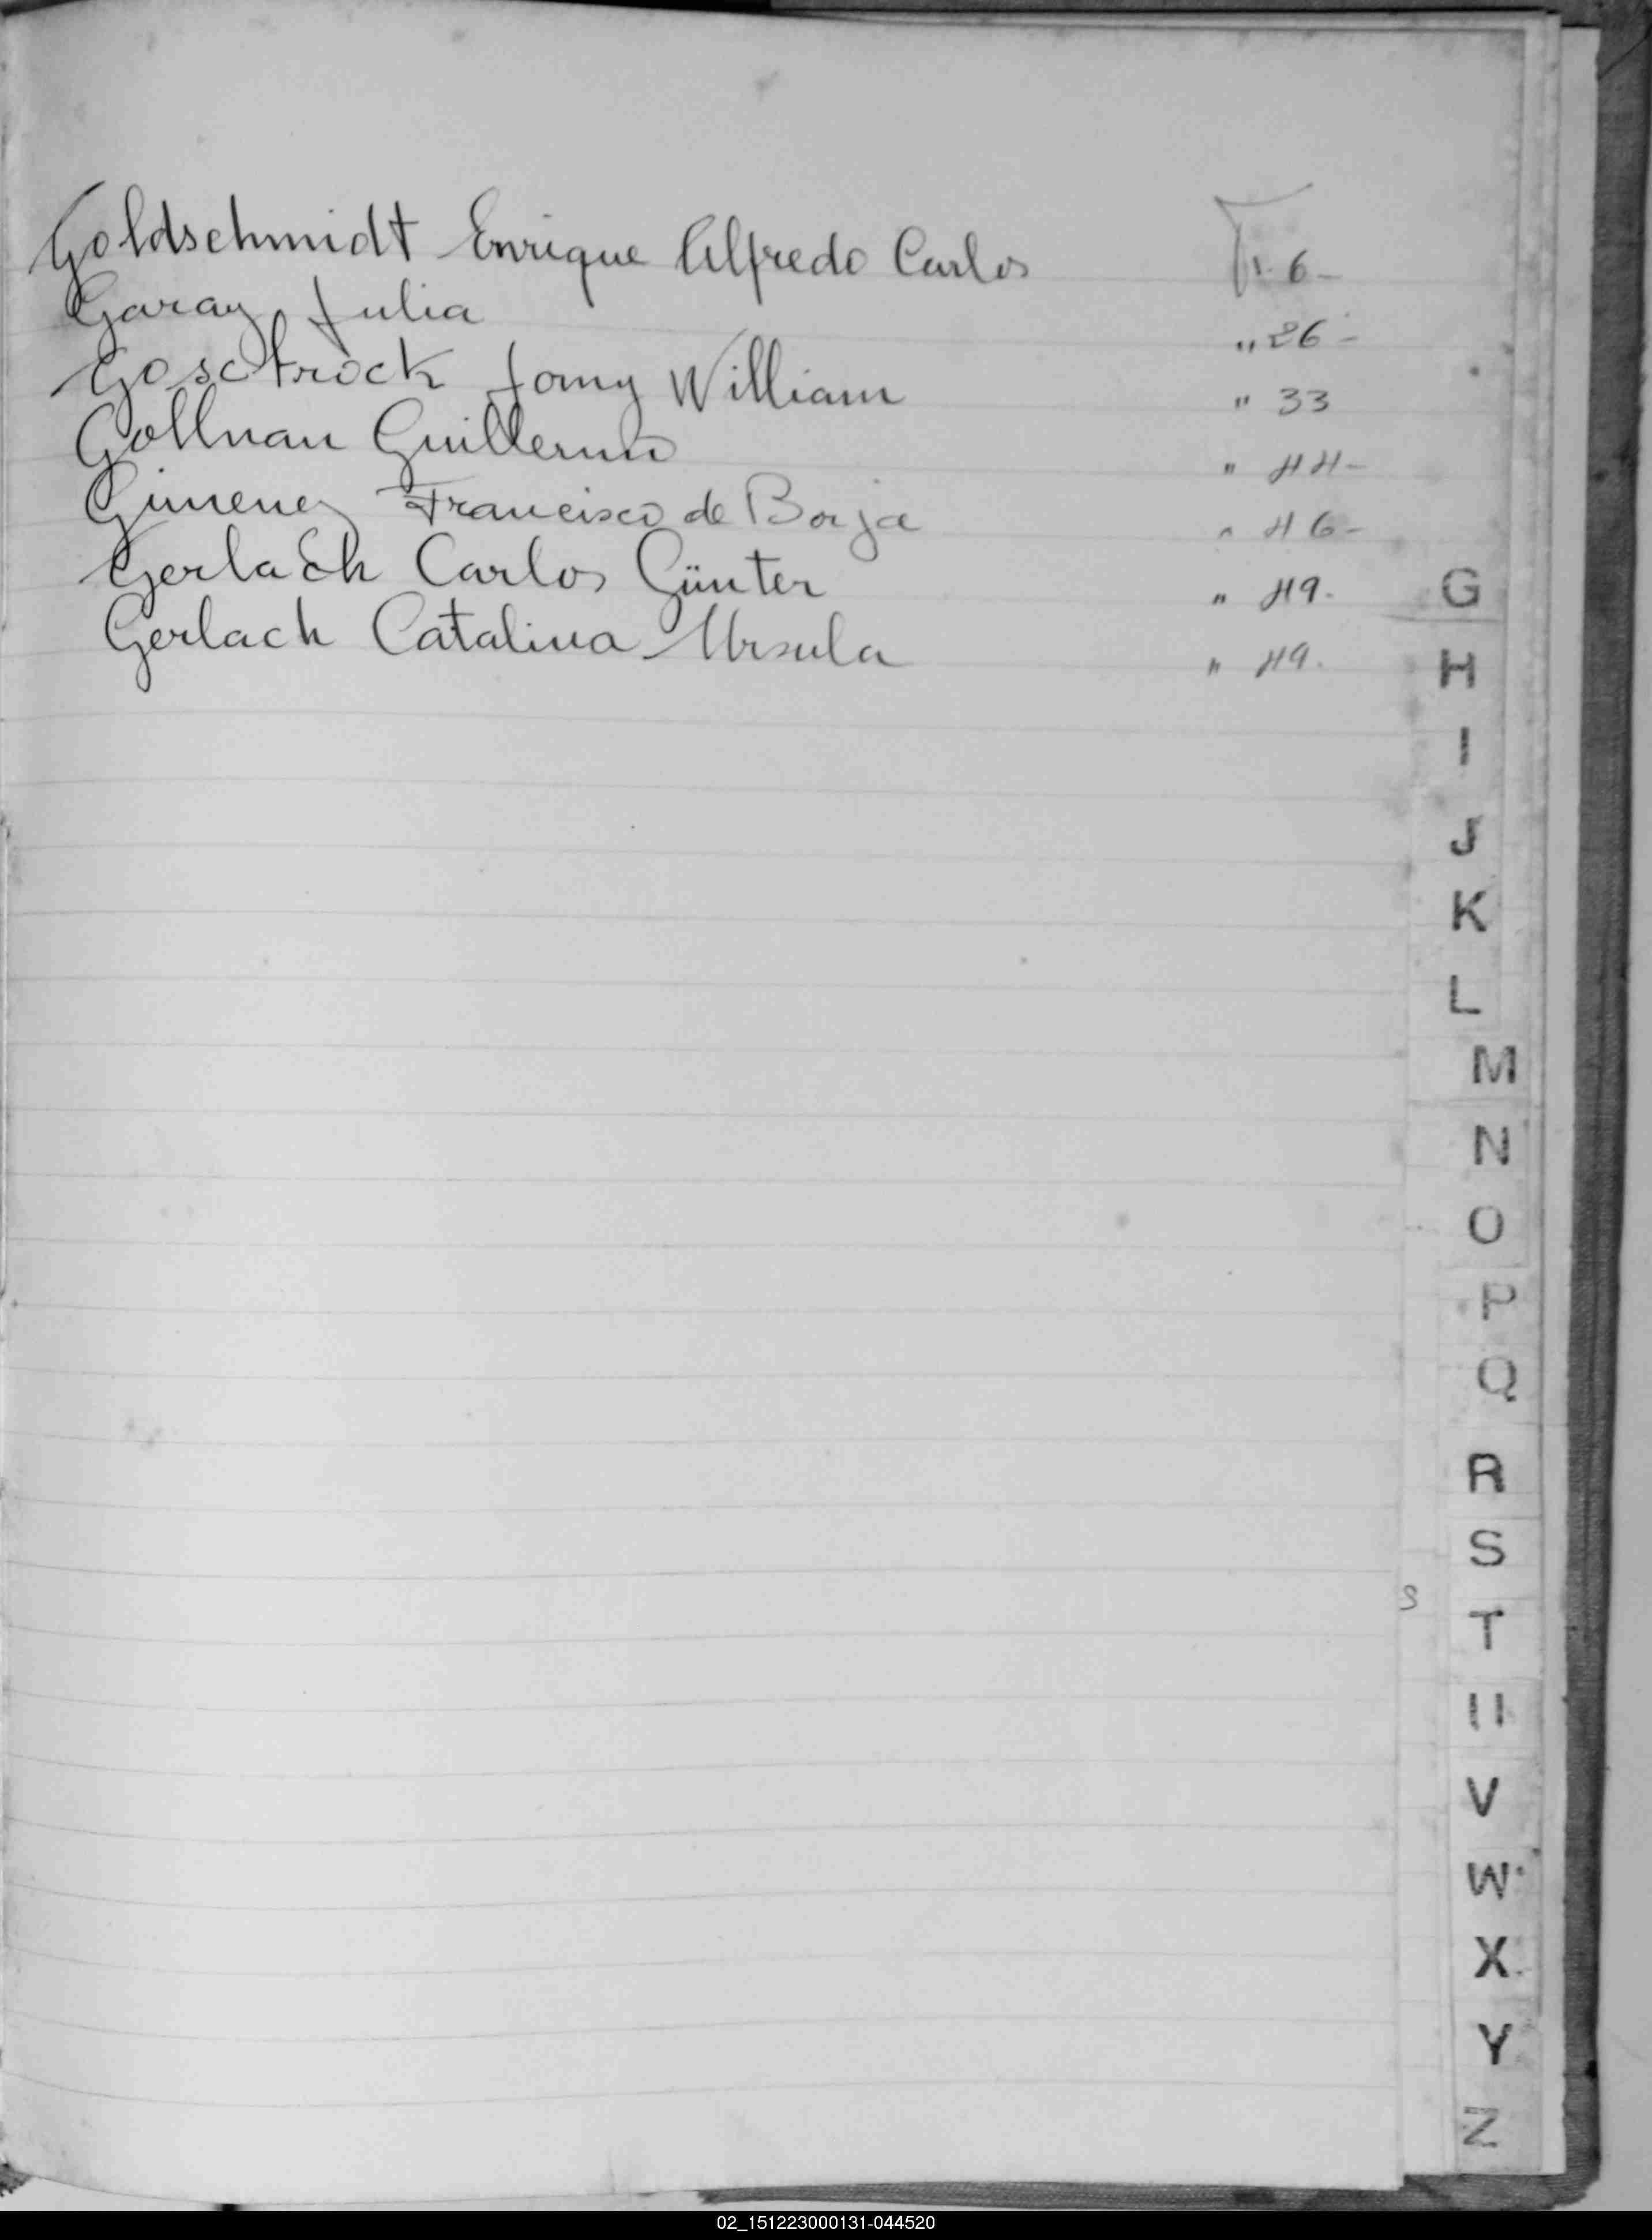 Goldschmidt Enrique Alfredo Carlos F. 6-
Garay Julia " 26-
Gosctrock Jomy William " 33
Gollnau Guillermo " 44-
Gimenez Francisco de Borja " 46-
Gerlach Carlos Günter " 49.
Gerlach Catalina Ursula " 49.
G
H
I
J
K
L
M
N
O
P
Q
R
S
S
T
U
V
W
X
Y
Z
02_151223000131-044520